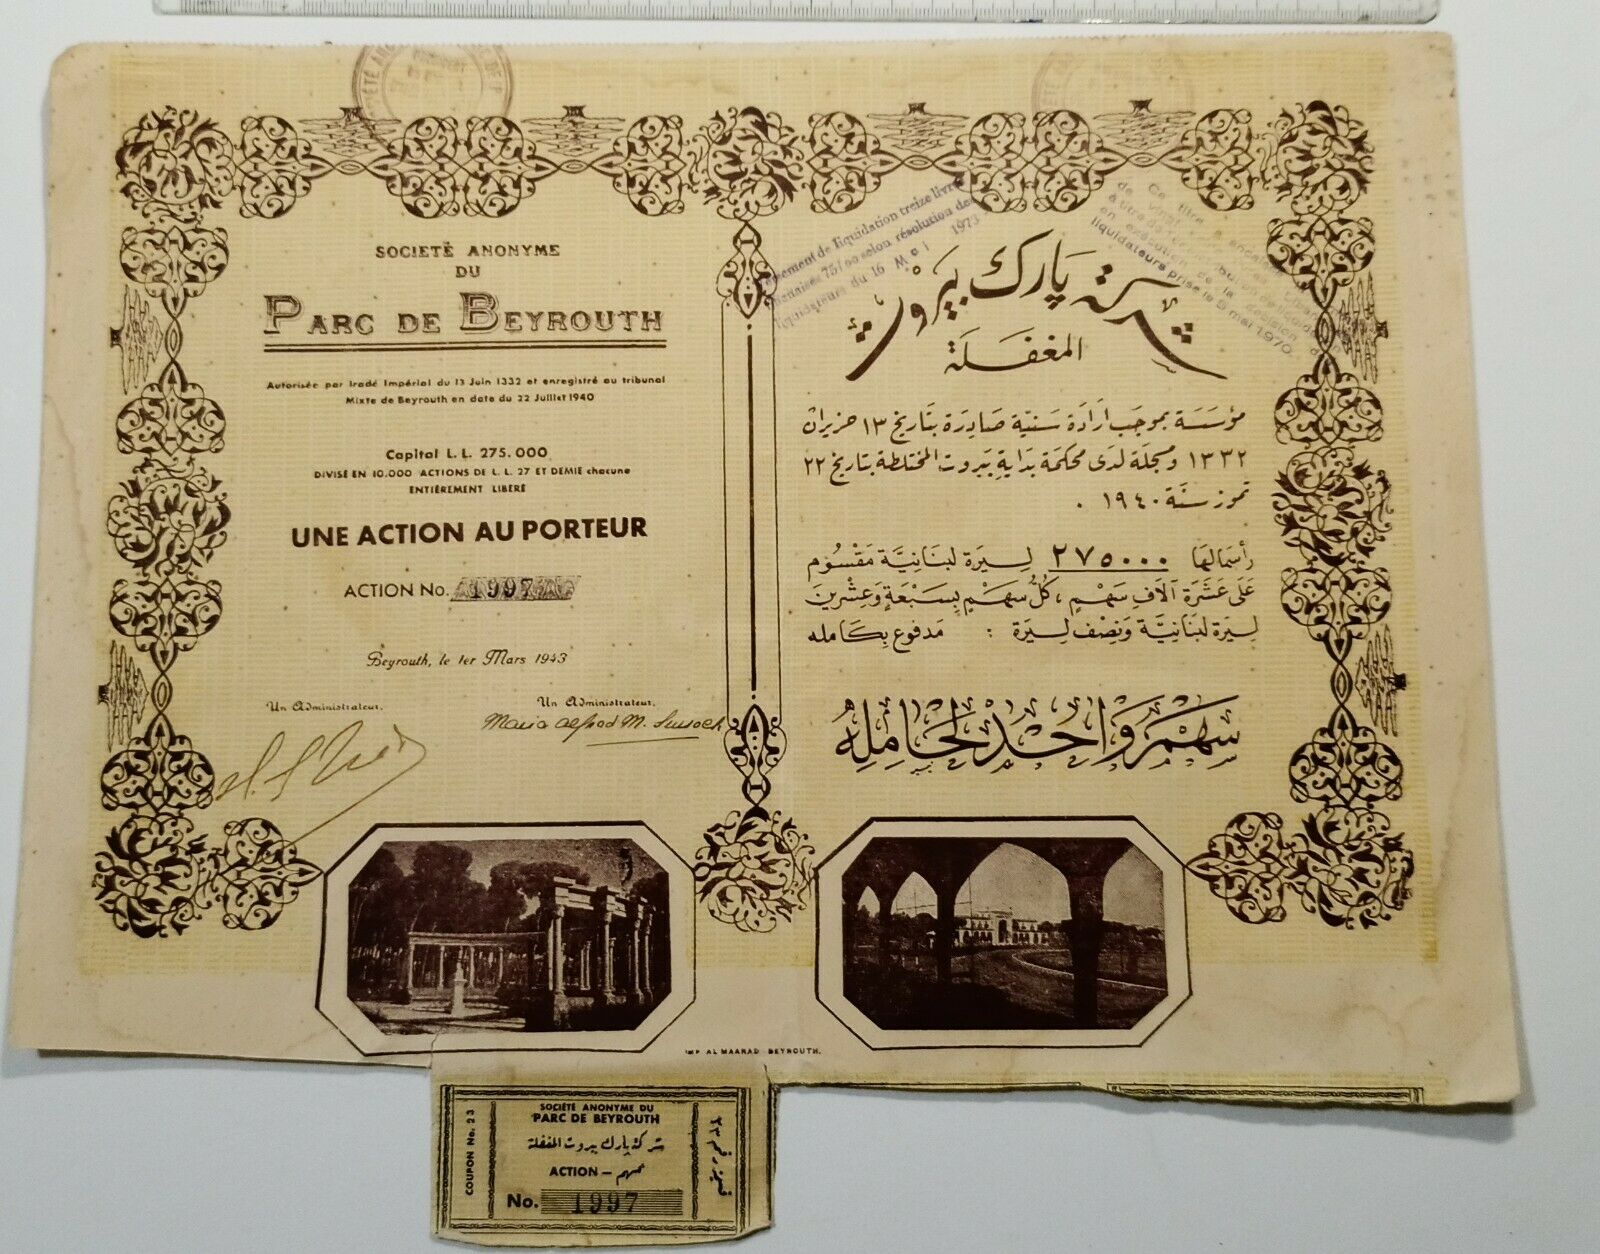 SOCIETÉ ANONYME
DU
PARC DE BEYROUTH
Autorisée par Iradé Impérial du 13 Juin 1332 et enregistré au tribunal
Mixte de Beyrouth en date du 22 Juillet 1940
Capital L.L. 275.000
DIVISÉ EN 10.000 ACTIONS DE L.L. 27 ET DEMIE chacune
ENTIÈREMENT LIBÉRÉ
UNE ACTION AU PORTEUR
ACTION No. 1997
Beyrouth, le 1er Mars 1943
Un Administrateur,
Un Administrateur,
Maria Alfred M. Sursock
de liquidation treize livres
75/00 selon résolution des
liquidateurs du 16 Mai 1973
Ce titre a encaissé
de vingt
à titre de
en exécution de la décision des
liquidateurs prise le 5 mai 1970.
شركة پارك بيروت
المغفلة
مؤسسة بموجب ارادة سنية صادرة بتاريخ ١٣ حزيران
١٣٣٢ ومسجلة لدى محكمة بداية بيروت المختلطة بتاريخ ٢٢
تموز سنة ١٩٤٠ .
رأسمالها ٢٧٥٠٠٠ ليرة لبنانية مقسوم
على عشرة آلاف سهم ، كل سهم بسبعة وعشرين
ليرة لبنانية ونصف ليرة : مدفوع بكامله
سهم واحد لحامله
IMP AL MAARAD BEYROUTH.
COUPON No. 23
SOCIÉTÉ ANONYME DU
PARC DE BEYROUTH
شركة پارك بيروت المغفلة
ACTION — سهم
No. 1997
قسيمة رقم ٢٣